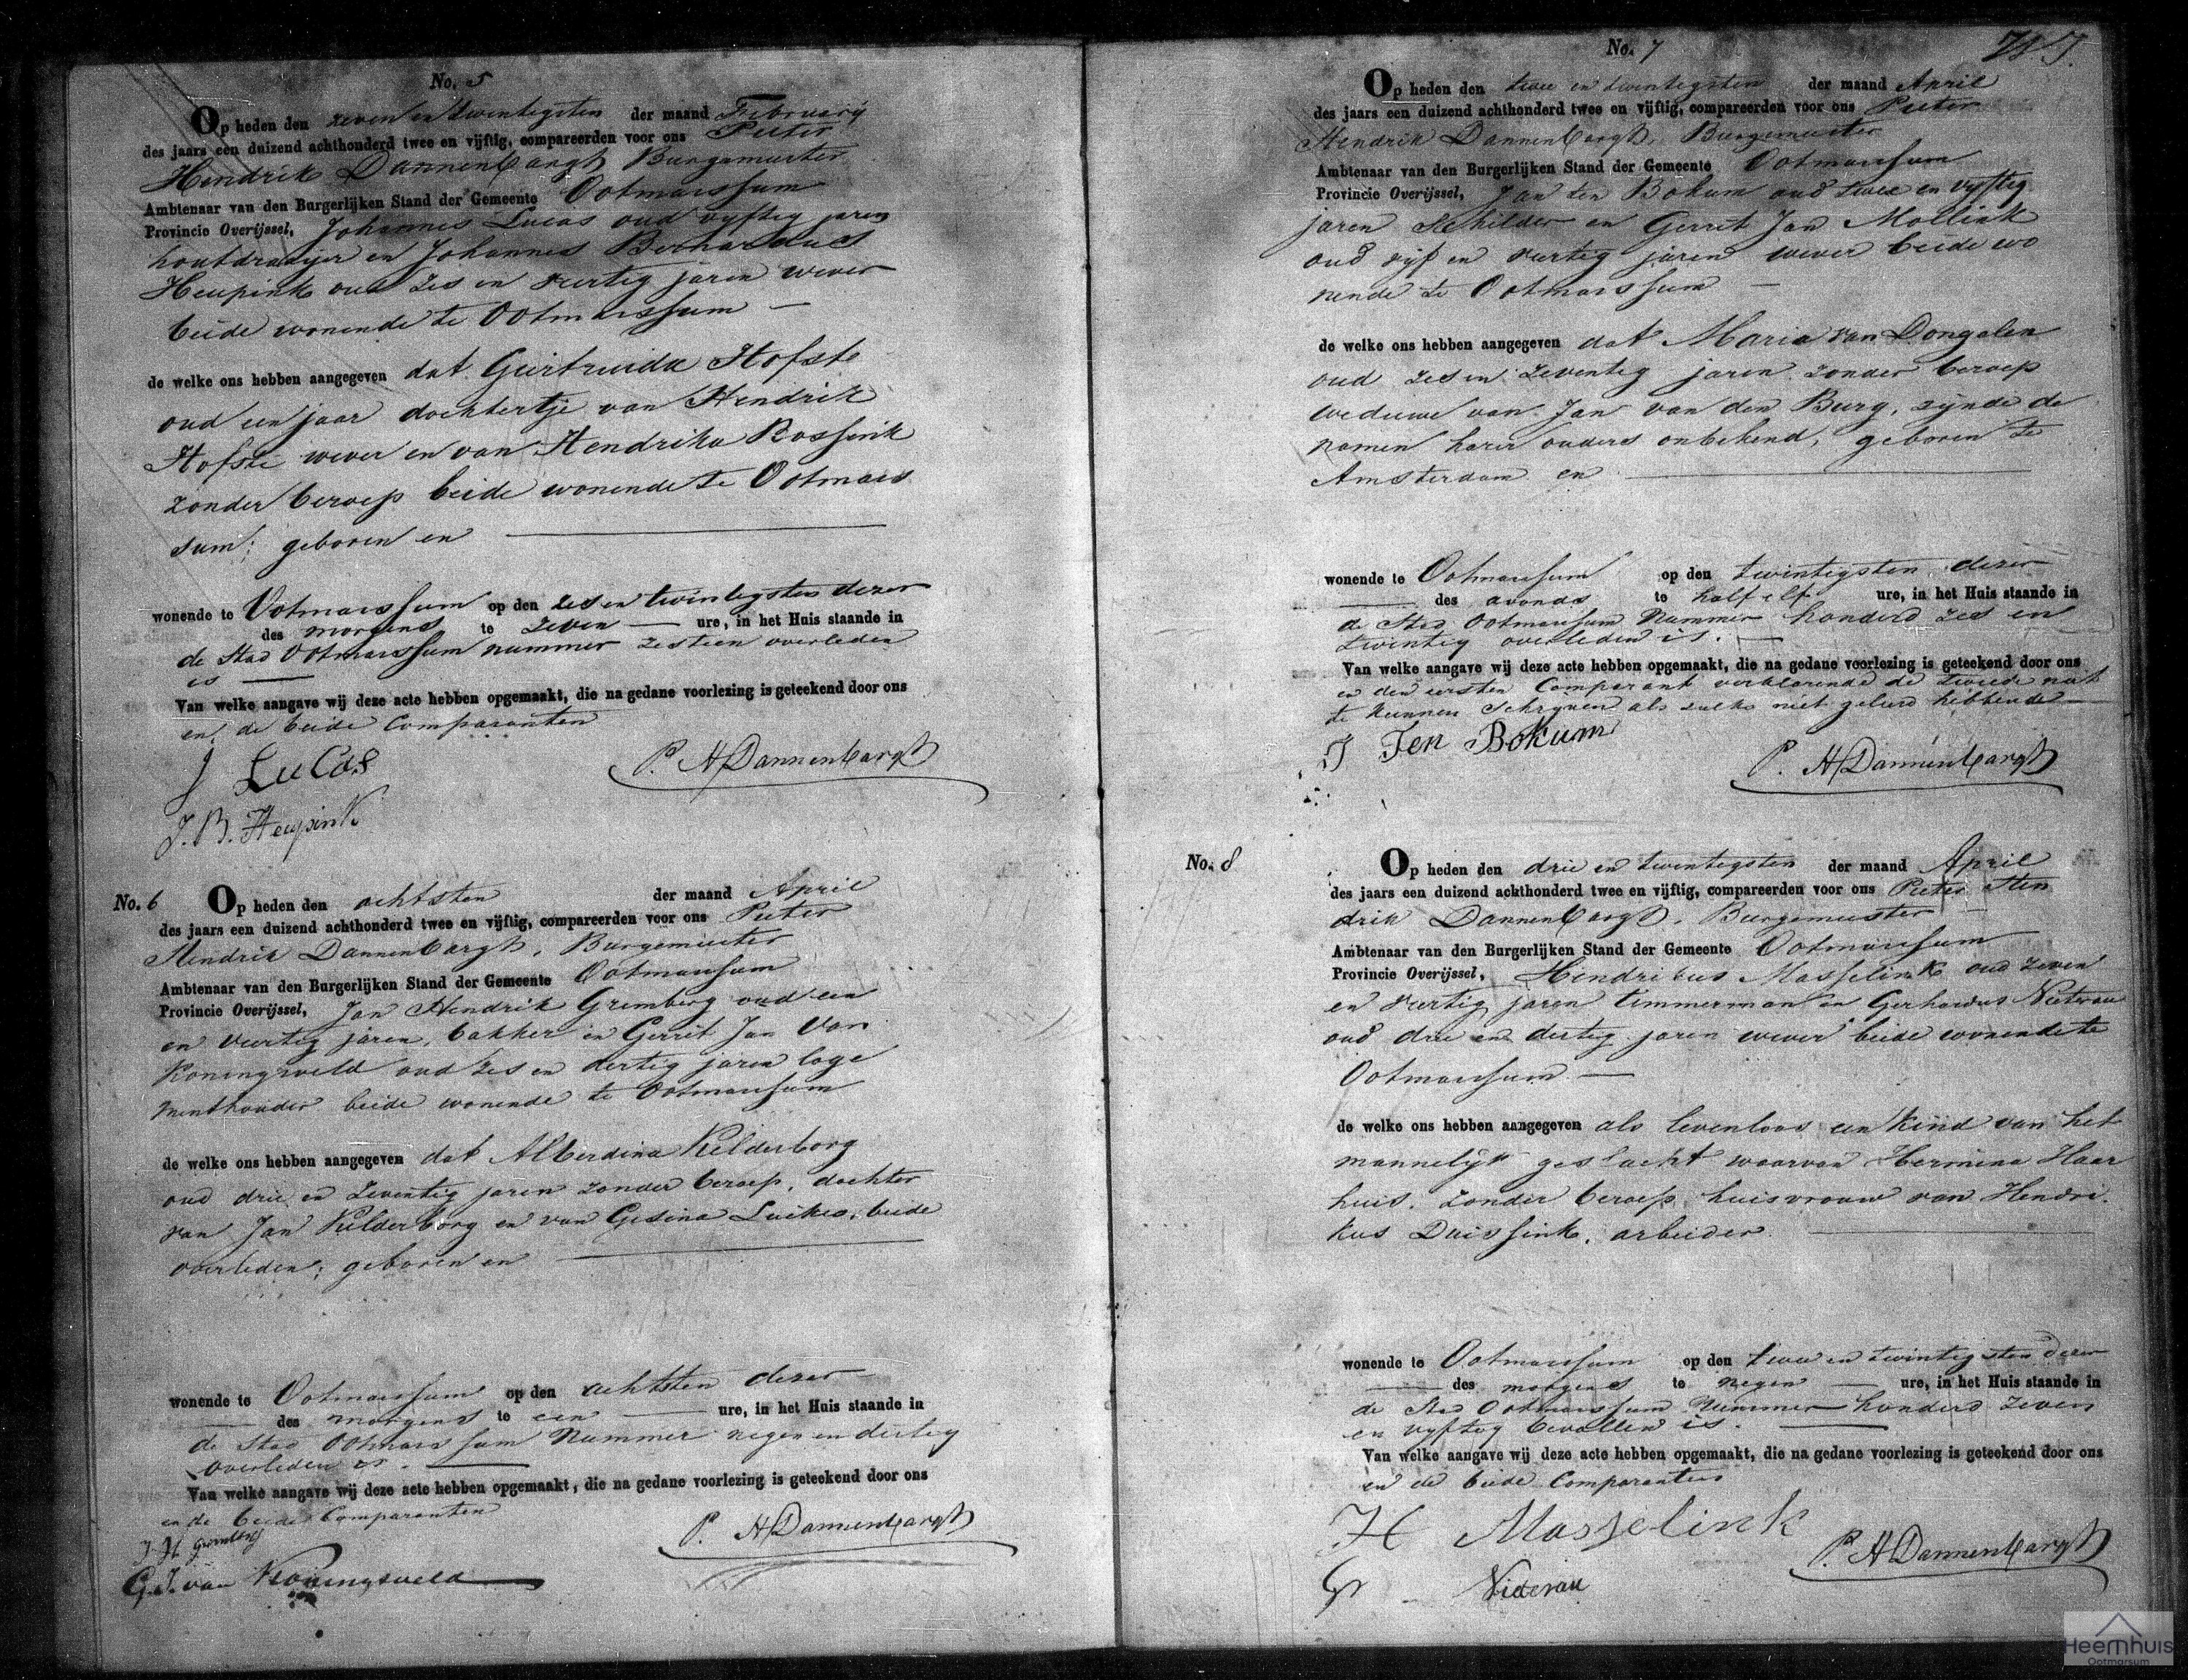 No. 5
Op heden den zeven en twintigsten der maand February
des jaars een duizend achthonderd twee en vijftig, compareerden voor ons Pieter
Hendrik Dannenbargh Burgemeester
Ambtenaar van den Burgerlijken Stand der Gemeente Ootmarssum
Provincie Overijssel, Johannes Lucas oud vyftig jaren
houtdraaijer en Johannes Bernardus
Heupink oud zes en veertig jaren wever
beide wonende te Ootmarssum —
de welke ons hebben aangegeven dat Geertruida Hofste
oud een jaar dochtertje van Hendrik
Hofste wever en van Hendrika Rossink
zonder beroep beide wonende te Ootmars
sum; geboren en
wonende te Ootmarssum op den zes en twintigsten dezer
des morgens te zeven — ure, in het Huis staande in
de Stad Ootmarssum nummer zestien overleden
is —
Van welke aangave wij deze acte hebben opgemaakt, die na gedane voorlezing is geteekend door ons
en de beide Comparanten
J LuCas
P. H Dannenbargh
J. B. Heupink
No. 6
Op heden den achtsten der maand April
des jaars een duizend achthonderd twee en vijftig, compareerden voor ons Pieter
Hendrik Dannenbargh, Burgemeester
Ambtenaar van den Burgerlijken Stand der Gemeente Ootmarssum
Provincie Overijssel, Jan Hendrik Gremberg oud een
en veertig jaren, bakker en Gerrit Jan van
Koningsveld oud zes en dertig jaren loge
menthouder beide wonende te Ootmarssum
de welke ons hebben aangegeven dat Alberdina Kelderborg
oud drie en zeventig jaren zonder beroep, dochter
van Jan Kelderborg en van Gesina Luikes, beide
overleden; geboren en
wonende te Ootmarssum op den achtsten dezer
— des morgens te een — ure, in het Huis staande in
de Stad Ootmarssum Nummer negen en dertig
overleden is. —
Van welke aangave wij deze acte hebben opgemaakt, die na gedane voorlezing is geteekend door ons
en de beide Comparanten
J. H Gremberg
P. H Dannenbargh
G. J. van Koningsveld
No. 7
Op heden den twee en twintigsten der maand April
des jaars een duizend achthonderd twee en vijftig, compareerden voor ons Pieter
Hendrik Dannenbargh, Burgemeester
Ambtenaar van den Burgerlijken Stand der Gemeente Ootmarssum
Provincie Overijssel, Jan ten Bokum oud twee en vyftig
jaren Schilder en Gerrit Jan Mollink
oud vyf en veertig jaren wever beide wo
nende te Ootmarssum —
de welke ons hebben aangegeven dat Maria van Dongelen
oud zes en zeventig jaren zonder beroep
weduwe van Jan van den Burg, zynde de
namen harer ouders onbekend, geboren te
Amsterdam en
wonende te Ootmarssum op den twintigsten dezer
— des avonds te half elf ure, in het Huis staande in
de Stad Ootmarssum Nummer honderd zes en
twintig overleden is. —
Van welke aangave wij deze acte hebben opgemaakt, die na gedane voorlezing is geteekend door ons
en den eersten Comparant verklarende de tweede niet
te kunnen Schryven als zulks niet geleerd hebbende
J Ten Bokum
P. H Dannenbargh
No. 8
Op heden den drie en twintigsten der maand April
des jaars een duizend achthonderd twee en vijftig, compareerden voor ons Pieter Hen
drik Dannenbargh, Burgemeester
Ambtenaar van den Burgerlijken Stand der Gemeente Ootmarssum
Provincie Overijssel, Hendrikus Masselink oud zeven
en veertig jaren timmerman en Gerhardus
oud drie en dertig jaren wever beide wonende te
Ootmarssum —
de welke ons hebben aangegeven als levenloos een kind van het
mannelyk geslacht waarvan Hermina Haar
huis, zonder beroep, huisvrouw van Hendri
kus Duissink, arbeider
wonende te Ootmarssum op den twee en twintigsten dezer
— des morgens te negen — ure, in het Huis staande in
de Stad Ootmarssum Nummer honderd zeven
en vyftig bevallen is. —
Van welke aangave wij deze acte hebben opgemaakt, die na gedane voorlezing is geteekend door ons
en de beide Comparanten
H Masselink
P. H Dannenbargh
Gr Niderau
Heemhuis
Ootmarsum